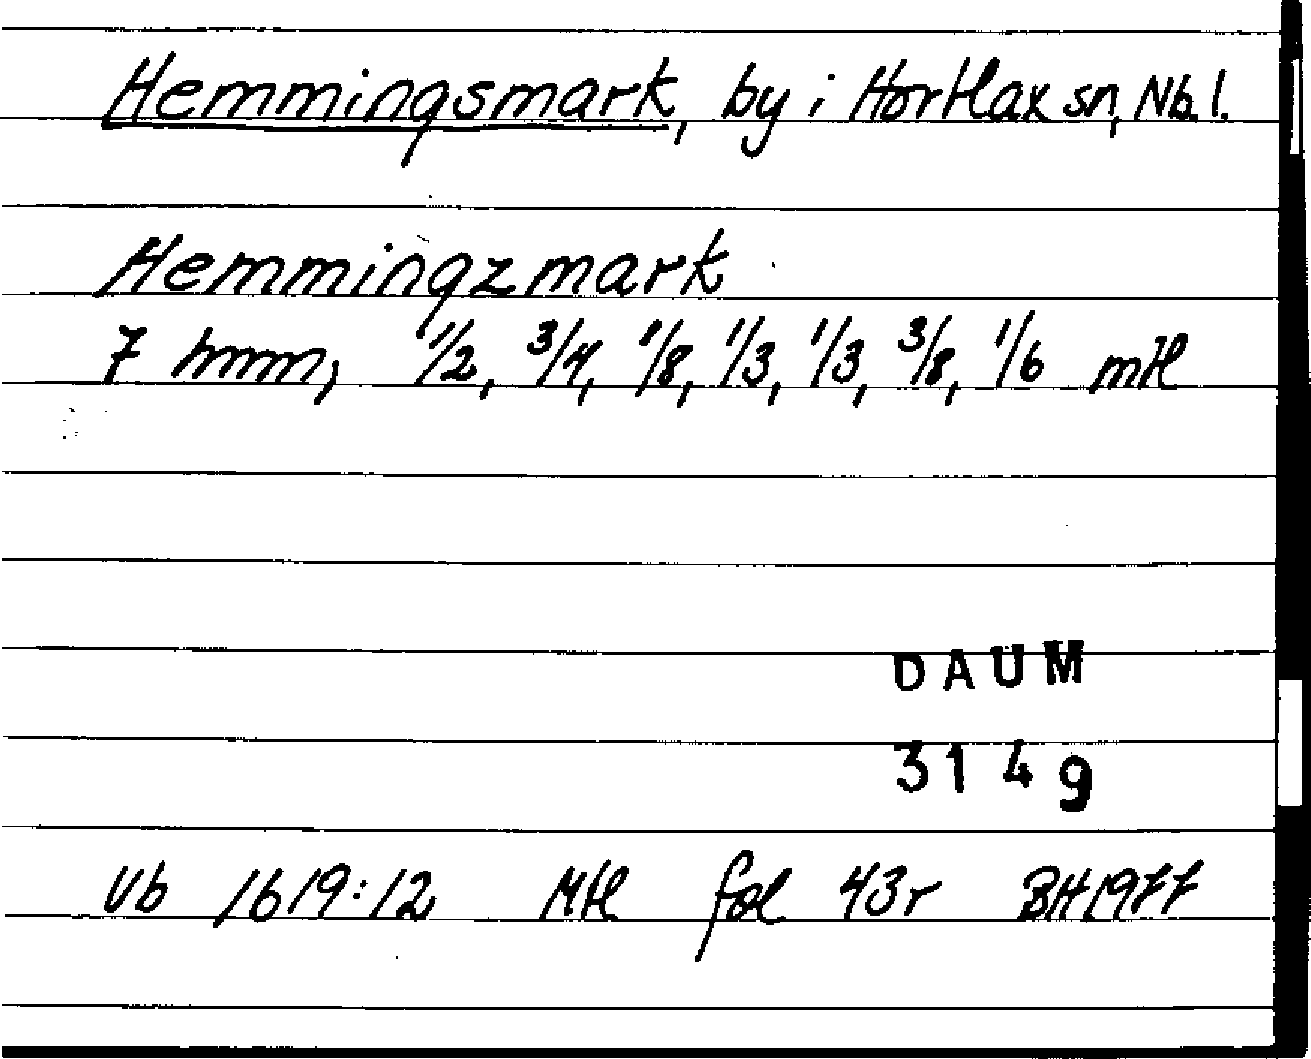 Hemmingsmark, by i Hortlax sn, Nb. l.
Hemmingzmark
7 hmn, 1/2, 3/4, 1/8, 1/3, 1/3, 3/8, 1/6 mtl
DAUM
3149
Vb 1619:12 Mtl fol 43r BH 1977